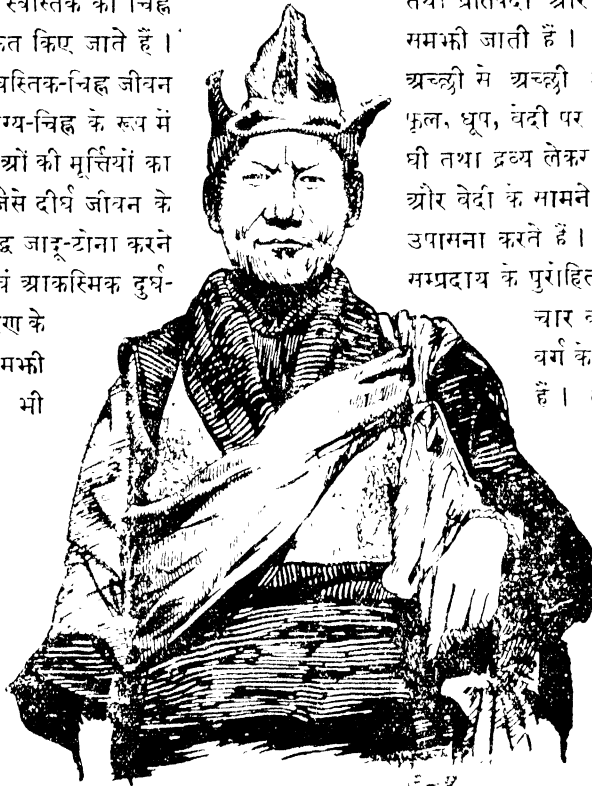 स्वस्तिक का चिह्न
किए जाते हैं ।
स्वस्तिक-चिह्न जीवन
चिह्न के रूप में
की मूर्त्तियों का
जैसे दीर्घ जीवन के
जादू-टोना करने
आकस्मिक दुर्घ-
के
भी
तथा प्रतिपदा और
समझी जाती हैं ।
अच्छी से अच्छी
फूल, धूप, वेदी पर
घी तथा द्रव्य लेकर
और वेदी के सामने
उपासना करते हैं ।
सम्प्रदाय के पुरोहित
चार
वर्ग के
हैं ।